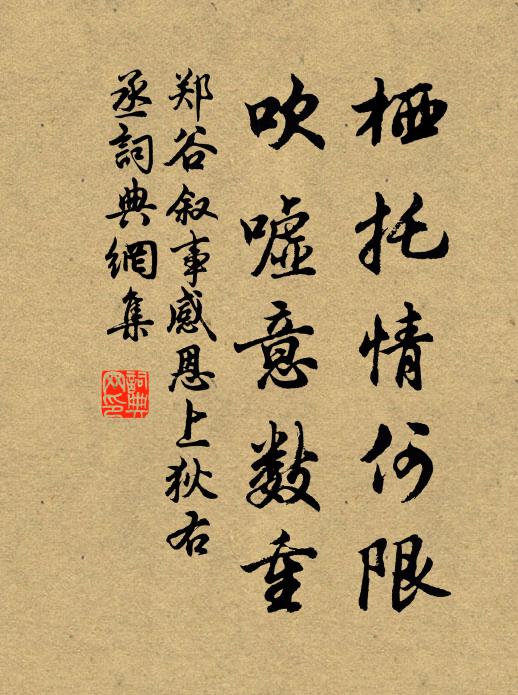 栖托情何限
吹嘘意数重
郑谷叙事感恩上狄右
丞詞典網集
詞典
网印